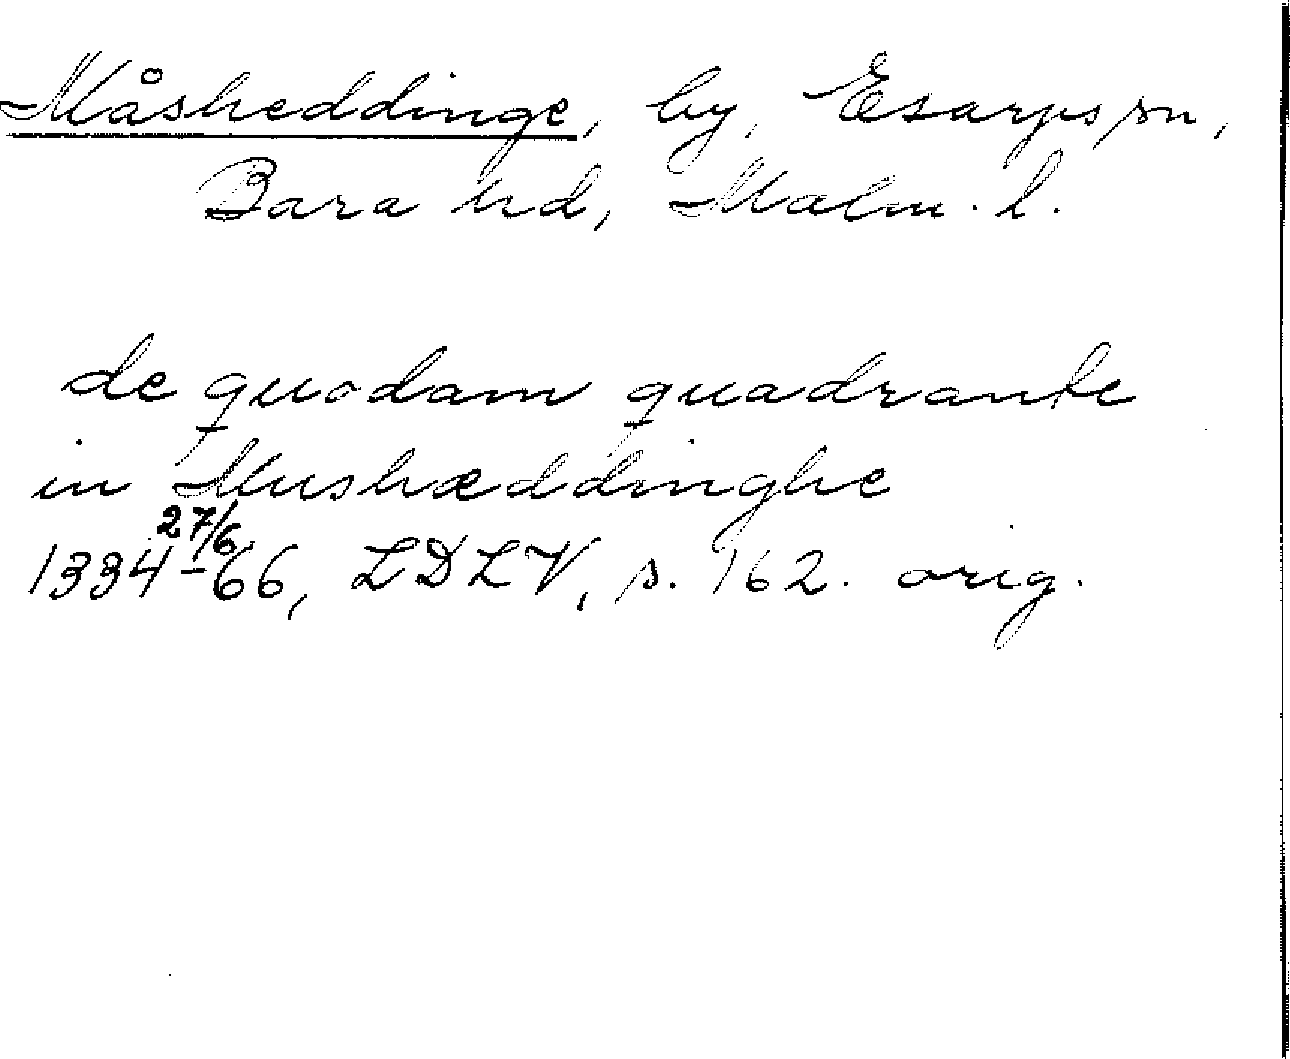 Måsheddinge, by, Esarps sn,
Bara hd, Malm. l.
de quodam quadrante
in Mushæddinghe
1334 27/6 -66, LDLV, s. 162. orig.